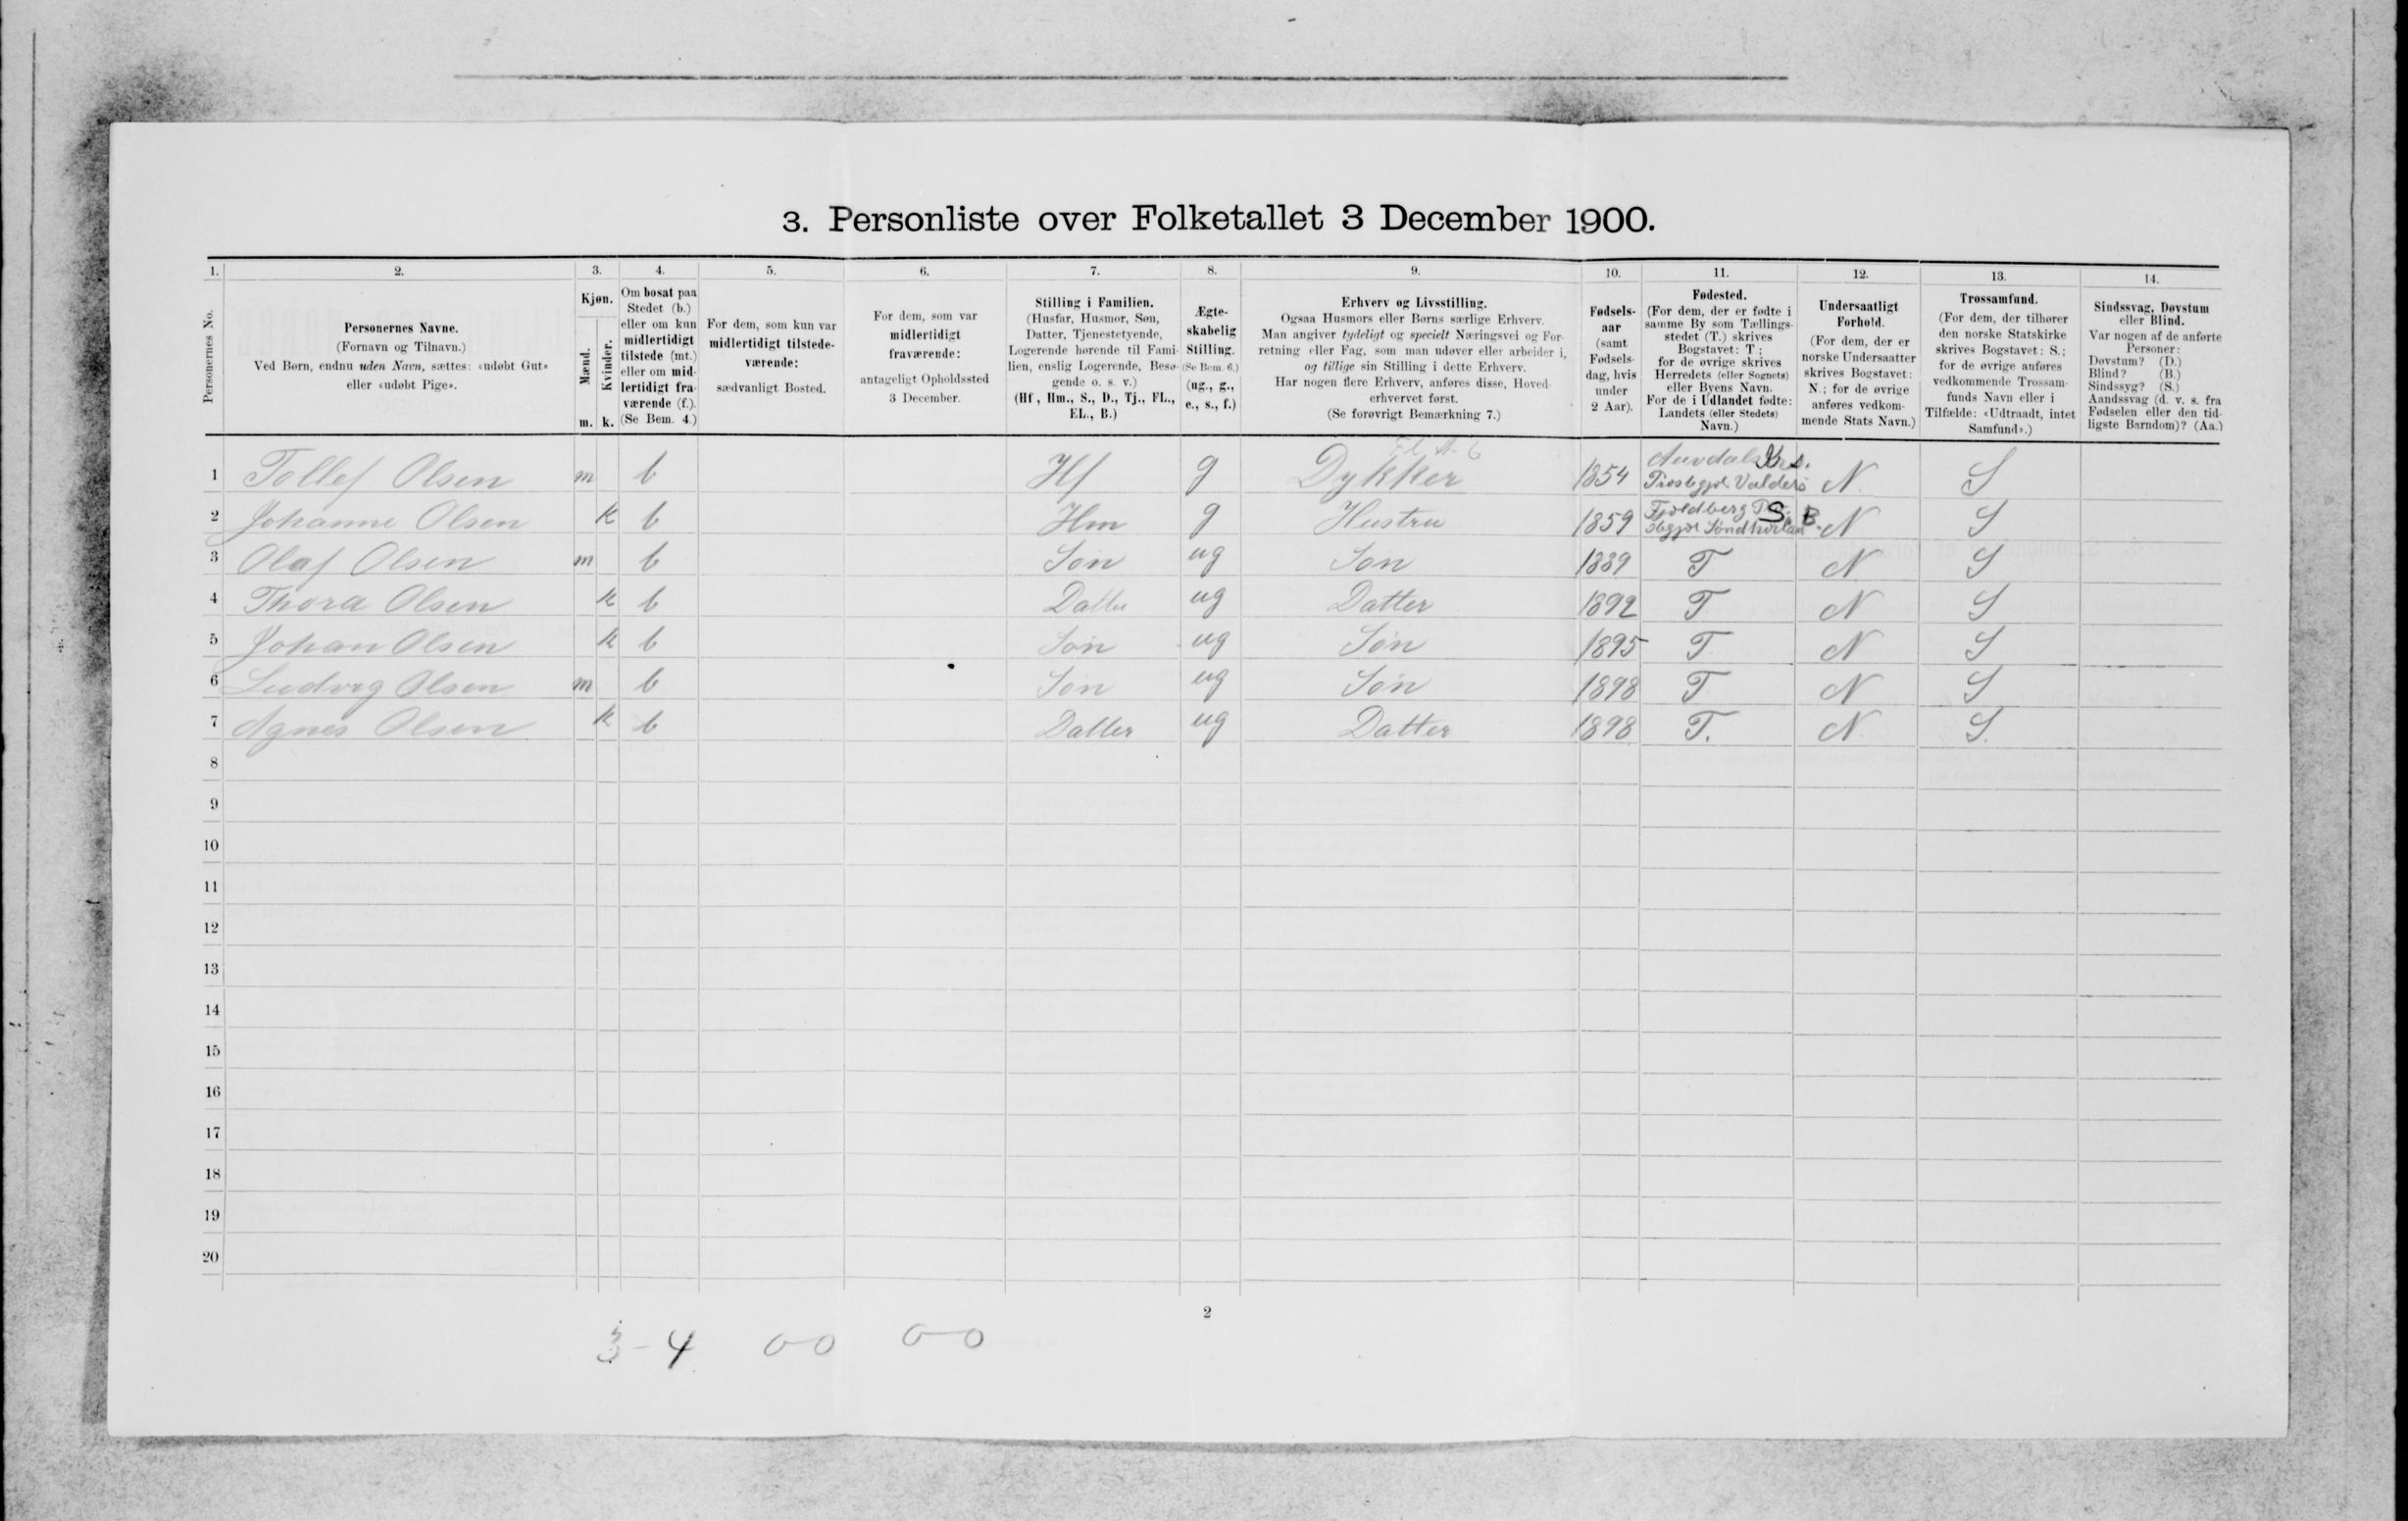 3. Personliste over Folketallet 3 December 1900.
1. 2. 3. 4. 5. 6. 7. 8. 9. 10. 11. 12. 13. 14.
Personernes No.
Personernes Navne.
(Fornavn og Tilnavn.)
Ved Børn, endnu uden Navn, sættes: «udøbt Gut»
eller «udøbt Pige».
Kjøn.
Mænd.
Kvinder.
m. k.
Om bosat paa
Stedet (b.)
eller om kun
midlertidigt
tilstede (mt.)
eller om mid-
lertidigt fra-
værende (f.).
(Se Bem. 4.)
For dem, som kun var
midlertidigt tilstede-
værende:
sædvanligt Bosted.
For dem, som var
midlertidigt
fraværende:
antageligt Opholdssted
3 December.
Stilling i Familien.
(Husfar, Husmor, Søn,
Datter, Tjenestetyende,
Logerende hørende til Fami-
lien, enslig Logerende, Besø-
gende o. s. v.)
(Hf, Hm., S., D., Tj., FL.,
EL., B.)
Ægte-
skabelig
Stilling.
(Se Bem. 6.)
(ug., g.,
e., s., f.)
Erhverv og Livsstilling.
Ogsaa Husmors eller Børns særlige Erhverv.
Man angiver tydeligt og specielt Næringsvei og For-
retning eller Fag, som man udøver eller arbeider i,
og tillige sin Stilling i dette Erhverv.
Har nogen flere Erhverv, anføres disse, Hoved-
erhvervet først.
(Se forøvrigt Bemærkning 7.)
Fødsels-
aar
(samt
Fødsels-
dag, hvis
under
2 Aar).
Fødested.
(For dem, der er fødte i
samme By som Tællings-
stedet (T.) skrives
Bogstavet: T;
for de øvrige skrives
Herredets (eller Sognets)
eller Byens Navn.
For de i Udlandet fødte:
Landets (eller Stedets)
Navn.)
Undersaatligt
Forhold.
(For dem, der er
norske Undersaatter
skrives Bogstavet:
N.; for de øvrige
anføres vedkom-
mende Stats Navn.)
Trossamfund.
(For dem, der tilhører
den norske Statskirke
skrives Bogstavet: S.;
for de øvrige anføres
vedkommende Trossam-
funds Navn eller i
Tilfælde: «Udtraadt, intet
Samfund».)
Sindssvag, Døvstum
eller Blind.
Var nogen af de anførte
Personer:
Døvstum? (D.)
Blind? (B.)
Sindssyg? (S.)
Aandssvag (d. v. s. fra
Fødselen eller den tid-
ligste Barndom)? (Aa.)
1 Tollef Olsen m b Hf g Dykker 1854 Valders N S
2 Johanne Olsen k b Hm g Hustru 1859 Fjeldberg S. B. N S
3 Olaf Olsen m b Søn ug Søn 1889 T N S
4 Thora Olsen k b Datter ug Datter 1892 T N S
5 Johan Olsen k b Søn ug Søn 1895 T N S
6 Ludvig Olsen m b Søn ug Søn 1898 T N S
7 Agnes Olsen k b Datter ug Datter 1898 T. N S.
8
9
10
11
12
13
14
15
16
17
18
19
20
2
3-4 0-0 0-0